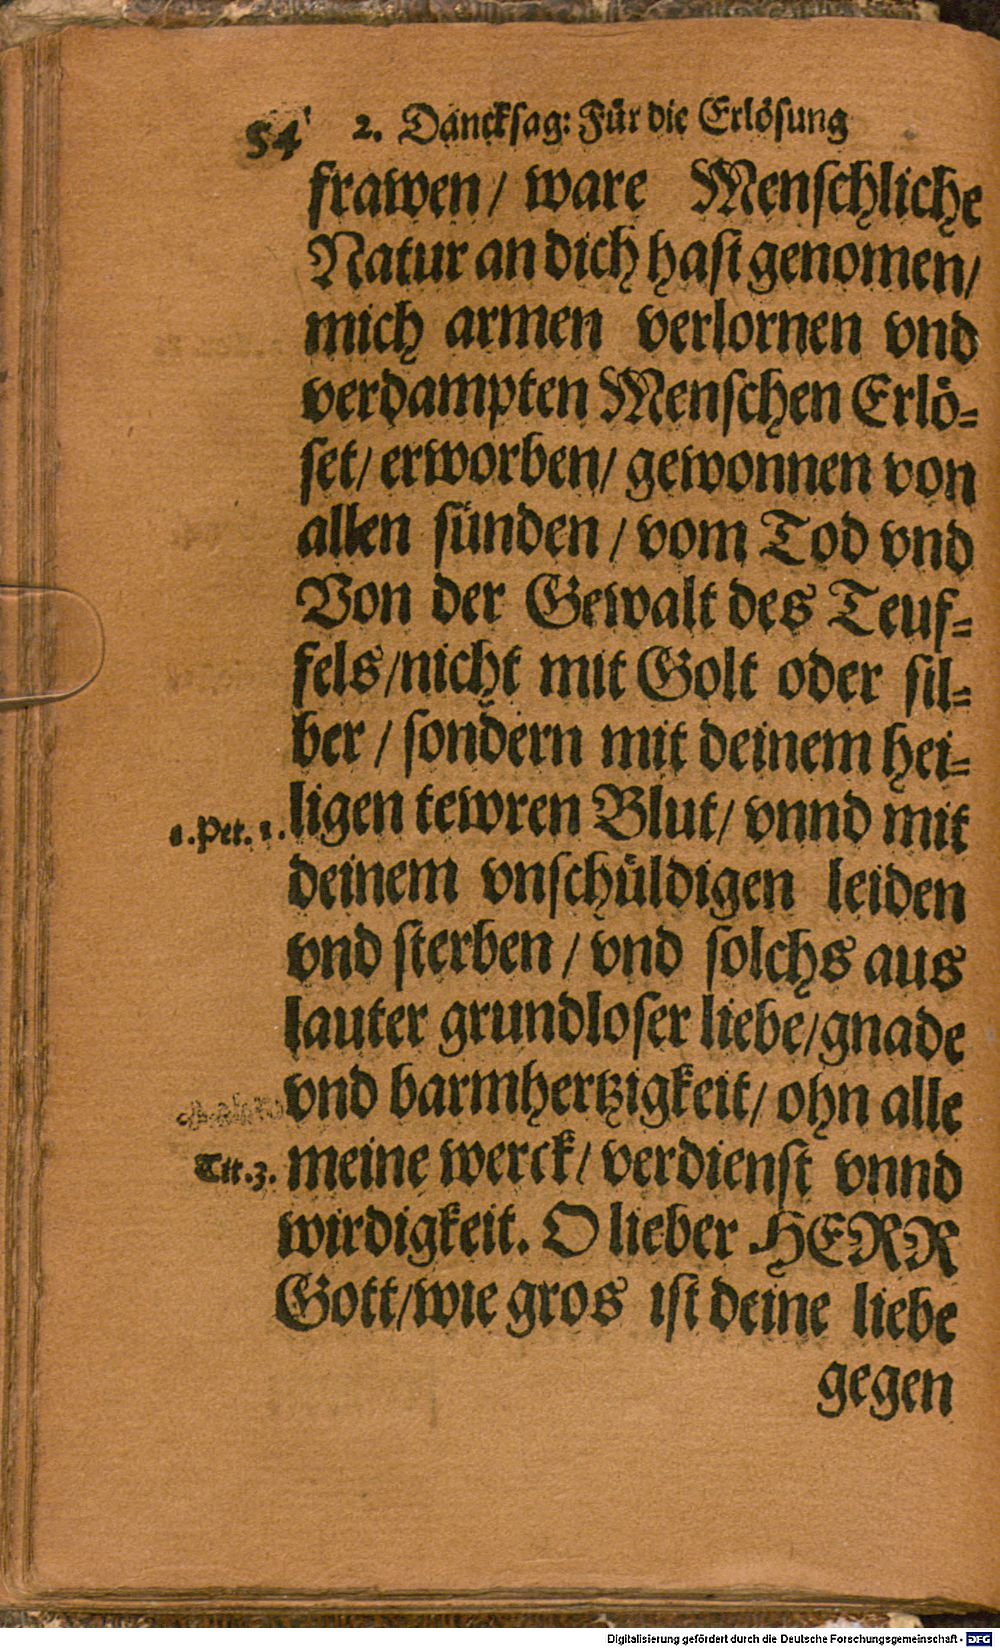 54 2. Dancksag: Für die Erlösung
frawen/ ware Menschliche
Natur an dich hast genomen/
mich armen verlornen vnd
verdampten Menschen Erlö-
set/ erworben/ gewonnen von
allen sünden / vom Tod vnd
Von der Gewalt des Teuf-
fels/nicht mit Golt oder sil-
ber / sondern mit deinem hei-
1.Pet. 1. ligen tewren Blut/ vnnd mit
deinem vnschüldigen leiden
vnd sterben / vnd solchs aus
lauter grundloser liebe/gnade
vnd barmhertzigkeit/ ohn alle
Tit.3. meine werck/ verdienst vnnd
wirdigkeit. O lieber HERR
Gott/wie gros ist deine liebe
gegen
Digitalisierung gefördert durch die Deutsche Forschungsgemeinschaft - DFG